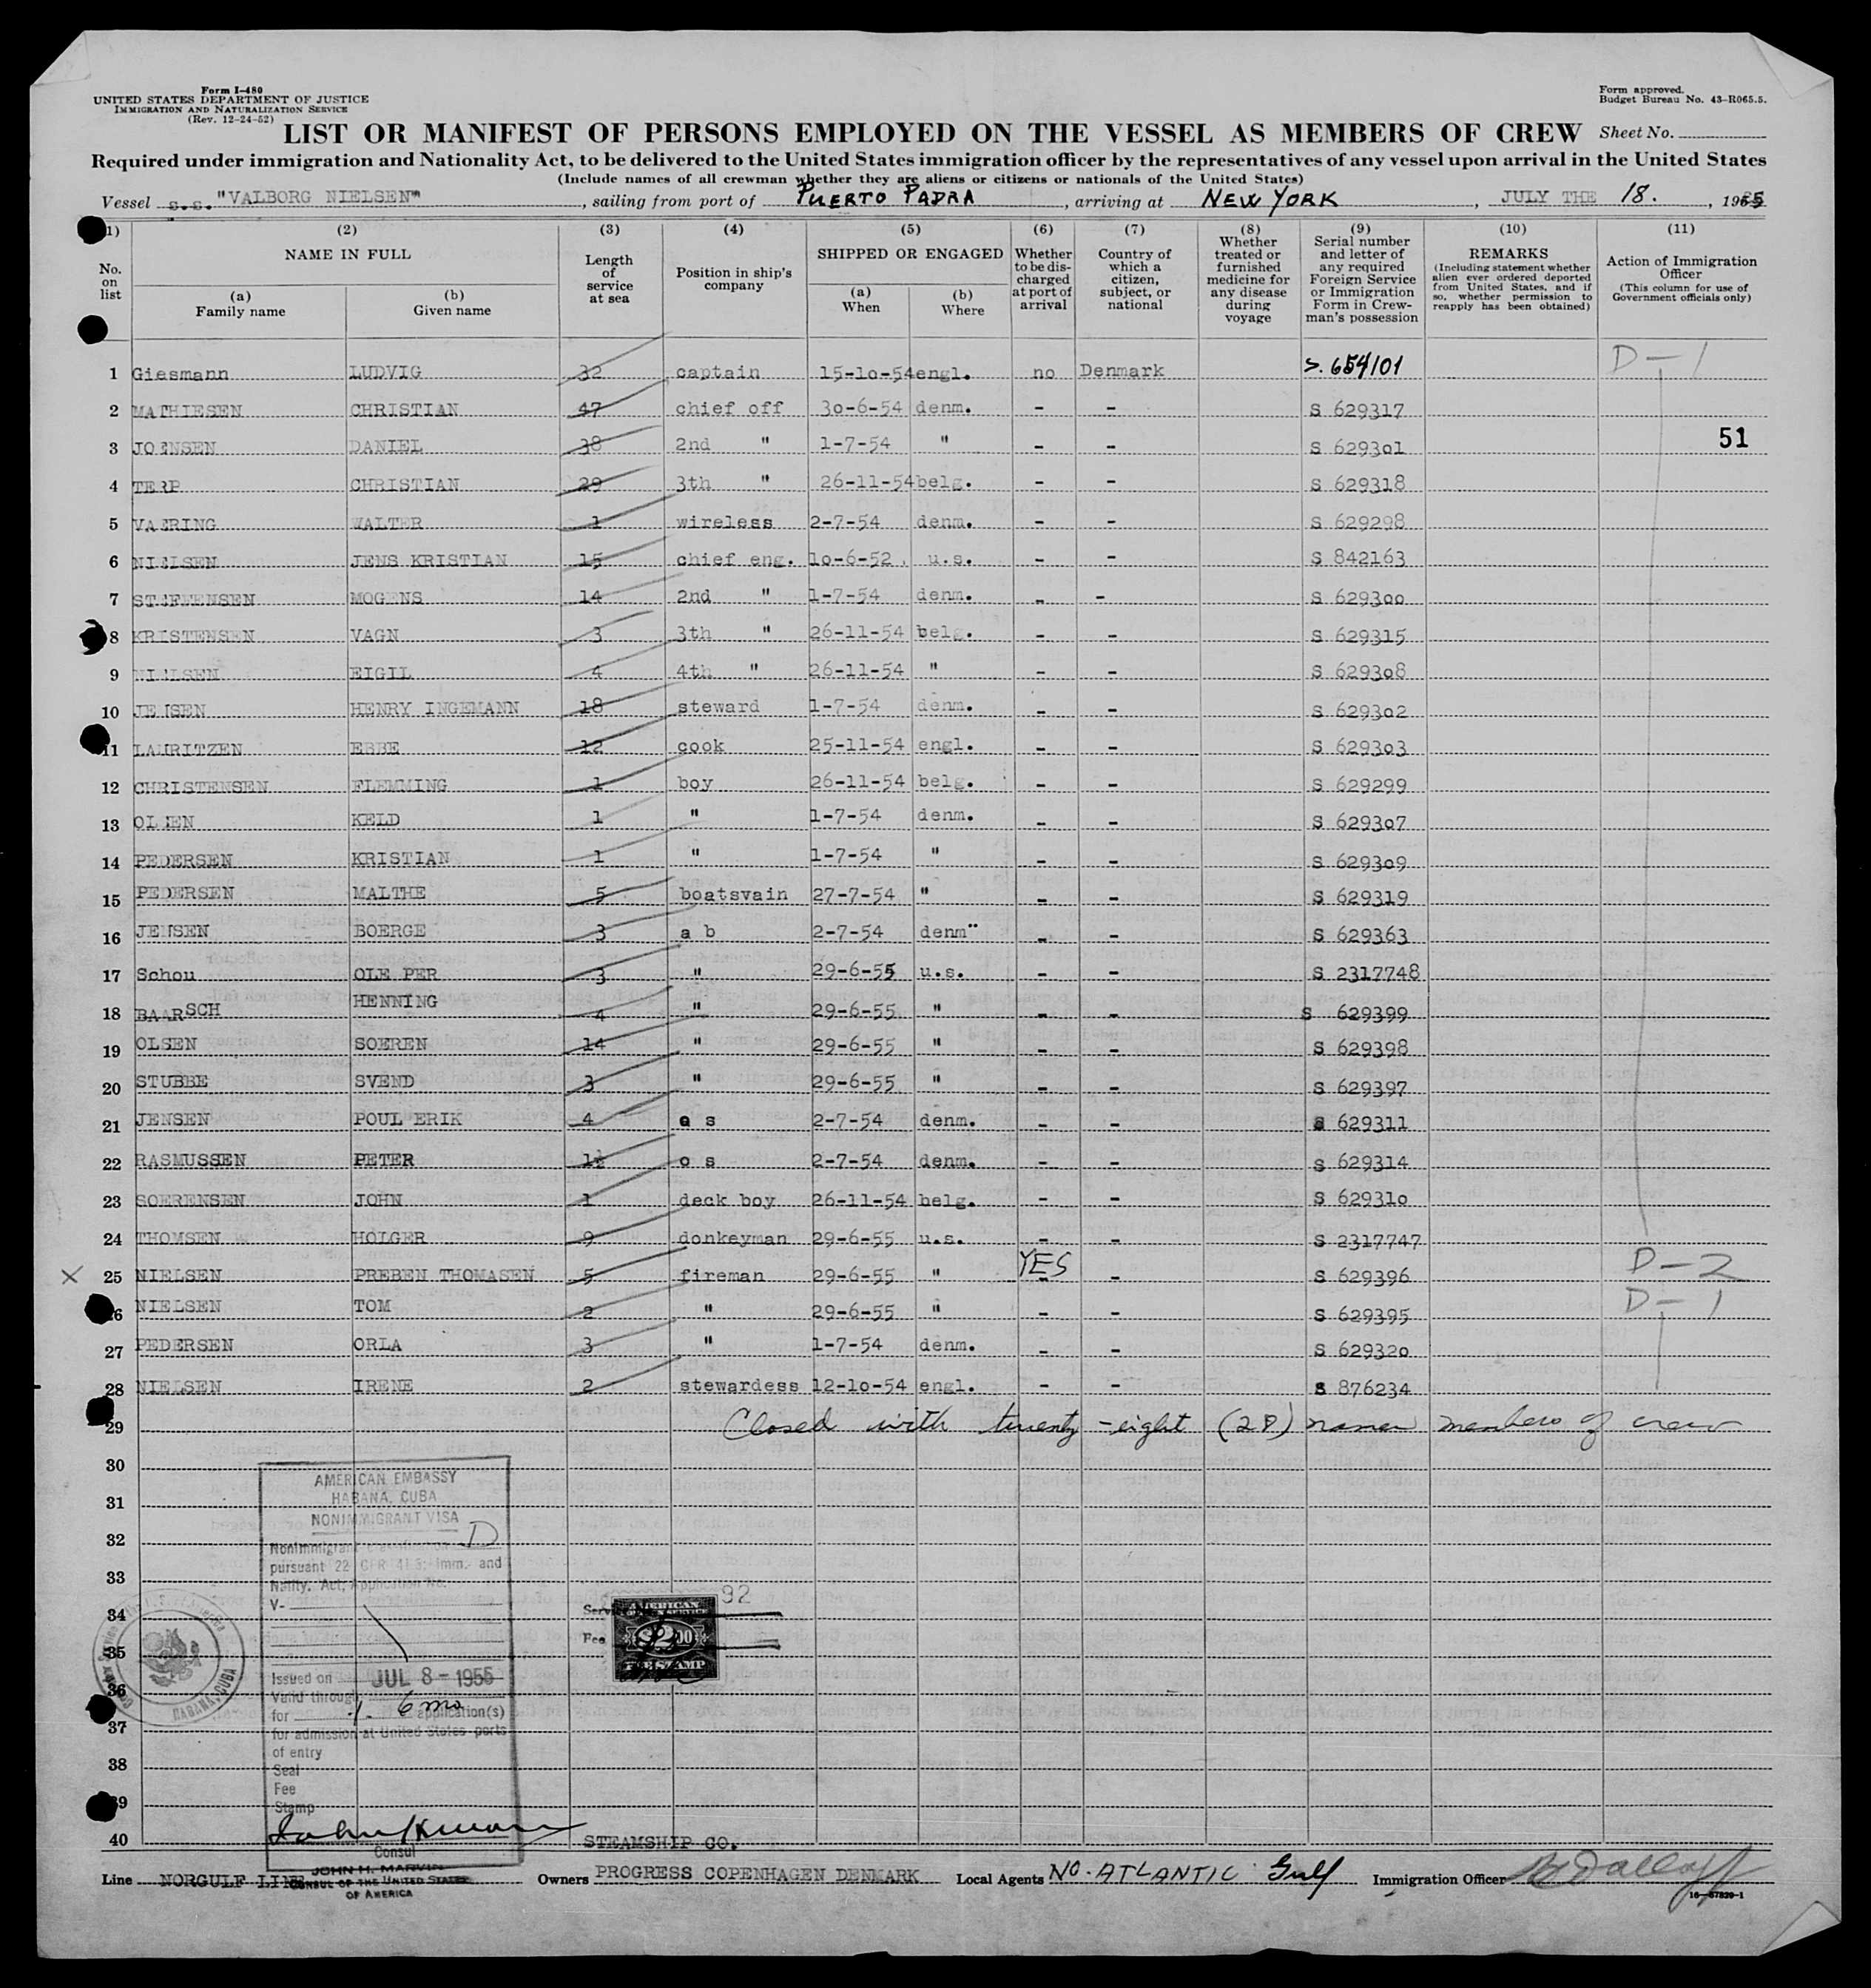 Form I-480
UNITED STATES DEPARTMENT OF JUSTICE
IMMIGRATION AND NATURALIZATION SERVICE
(Rev. 12-24-52)
Form approved.
Budget Bureau No. 43-R065.5.
LIST OR MANIFEST OF PERSONS EMPLOYED ON THE VESSEL AS MEMBERS OF CREW
Sheet No.
Required under immigration and Nationality Act, to be delivered to the United States immigration officer by the representatives of any vessel upon arrival in the United States
(Include names of all crewman whether they are aliens or citizens or nationals of the United States)
Vessel s.s. "VALBORG NIELSEN", sailing from port of PUERTO PADRA, arriving at NEW YORK, JULY THE 18., 1955
(1) No. on list
(2) NAME IN FULL
(a) Family name
(b) Given name
(3) Length of service at sea
(4) Position in ship's company
(5) SHIPPED OR ENGAGED
(a) When
(b) Where
(6) Whether to be discharged at port of arrival
(7) Country of which a citizen, subject, or national
(8) Whether treated or furnished medicine for any disease during voyage
(9) Serial number and letter of any required Foreign Service or Immigration Form in Crewman's possession
(10) REMARKS (Including statement whether alien ever ordered deported from United States, and if so, whether permission to reapply has been obtained)
(11) Action of Immigration Officer (This column for use of Government officials only)
1 Giesmann LUDVIG 32 captain 15-1o-54 engl. no Denmark S. 654101 D-1
2 MATHIESEN CHRISTIAN 47 chief off 3o-6-54 denm. - - S 629317
3 JOENSEN DANIEL 38 2nd " 1-7-54 " - - S 6293o1 51
4 TERP CHRISTIAN 29 3th " 26-11-54 belg. - - S 629318
5 VAERING WALTER 1 wireless 2-7-54 denm. - - S 629298
6 NIELSEN JENS KRISTIAN 15 chief eng. 1o-6-52. u.s. - - S 842163
7 STEFFENSEN MOGENS 14 2nd " 1-7-54 denm. - - S 6293oo
8 KRISTENSEN VAGN 3 3th " 26-11-54 belg. - - S 629315
9 NIELSEN EIGIL 4 4th " 26-11-54 " - - S 6293o8
10 JENSEN HENRY INGEMANN 18 steward 1-7-54 denm. - - S 6293o2
11 LAURITZEN EBBE 12 cook 25-11-54 engl. - - S 6293o3
12 CHRISTENSEN FLEMMING 1 boy 26-11-54 belg. - - S 629299
13 OLSEN KELD 1 " 1-7-54 denm. - - S 6293o7
14 PEDERSEN KRISTIAN 1 " 1-7-54 " - - S 6293o9
15 PEDERSEN MALTHE 5 boatsvain 27-7-54 " - - S 629319
16 JENSEN BOERGE 3 a b 2-7-54 denm" - - S 629363
17 Schou OLE PER 3 " 29-6-55 u.s. - - S 2317748
18 BAARSCH HENNING 4 " 29-6-55 " - - S 629399
19 OLSEN SOEREN 14 " 29-6-55 " - - S 629398
20 STUBBE SVEND 3 " 29-6-55 " - - S 629397
21 JENSEN POUL ERIK 4 o s 2-7-54 denm. - - S 629311
22 RASMUSSEN PETER 1½ o s 2-7-54 denm. - - S 629314
23 SOERENSEN JOHN 1 deck boy 26-11-54 belg. - - S 62931o
24 THOMSEN HOLGER 9 donkeyman 29-6-55 u.s. - - S 2317747
X 25 NIELSEN PREBEN THOMASEN 5 fireman 29-6-55 " YES - - S 629396 D-2
26 NIELSEN TOM 2 " 29-6-55 " - - S 629395 D-1
27 PEDERSEN ORLA 3 " 1-7-54 denm. - - S 62932o
28 NIELSEN IRENE 2 stewardess 12-1o-54 engl. - - S 876234
29 Closed with twenty-eight (28) names members of crew
30
31
32
33
34
35
36
37
38
39
40
AMERICAN EMBASSY
HABANA, CUBA
NONIMMIGRANT VISA
Nonimmigrant classification D
pursuant 22 CFR 41.5; Imm. and
Natlty. Act; Application No.
V-
Issued on JUL 8 - 1955
Valid through 6 mo
for 1 application(s)
for admission at United States ports
of entry
Seal
Fee
Stamp
Consul
JOHN H. MARVIN
CONSUL OF THE UNITED STATES
OF AMERICA
HABANA, CUBA
92
Fee
AMERICAN
$2.00
FEE STAMP
STEAMSHIP CO.
Line NORGULF LINE
Owners PROGRESS COPENHAGEN DENMARK
Local Agents NO. ATLANTIC Gulf
Immigration Officer
16-67829-1